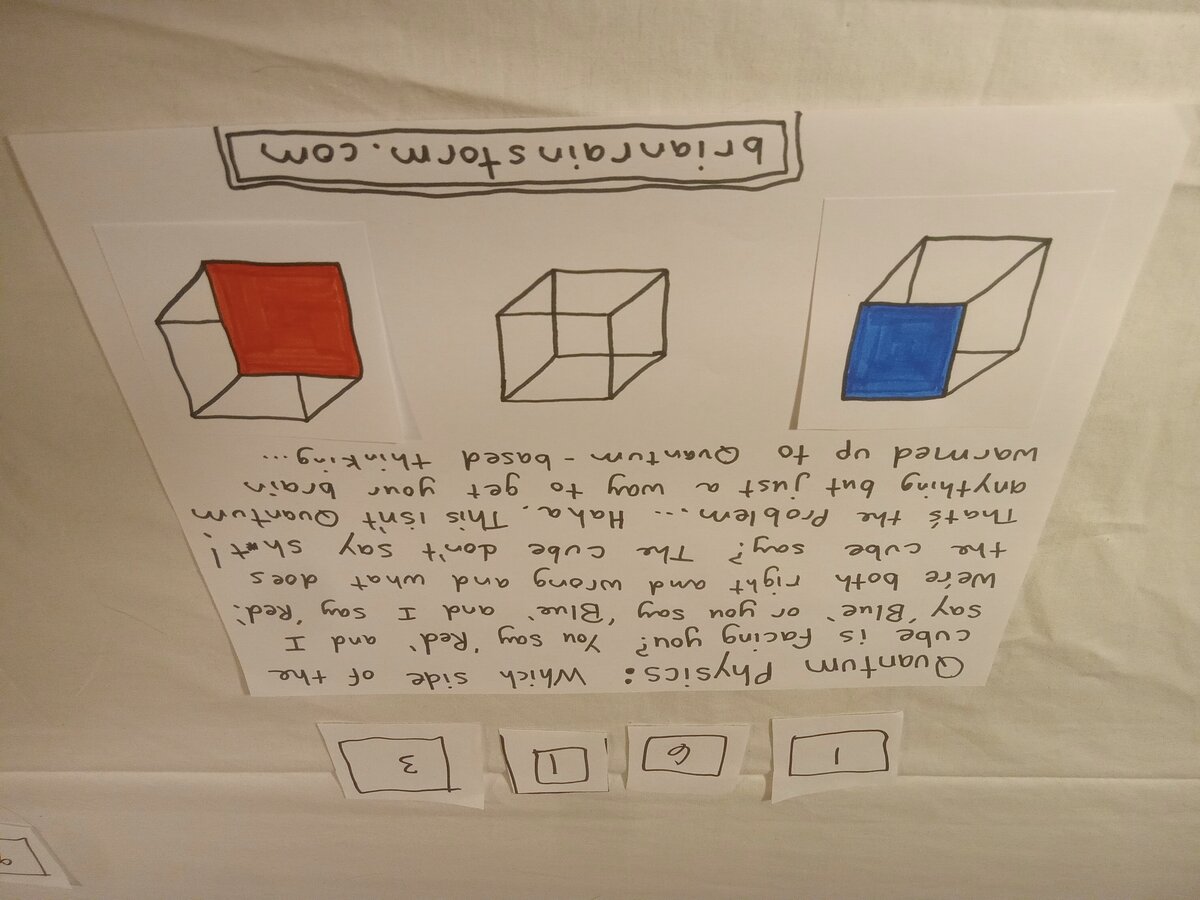 1 6 1 3
Quantum Physics: Which side of the
cube is facing you? You say 'Red' and I
say 'Blue' or you say 'Blue' and I say 'Red'.
We're both right and wrong and what does
the cube say? The cube don't say sh*t!
That's the Problem... Haha. This isn't Quantum
anything but just a way to get your brain
warmed up to Quantum-based thinking...
brianrainstorm.com